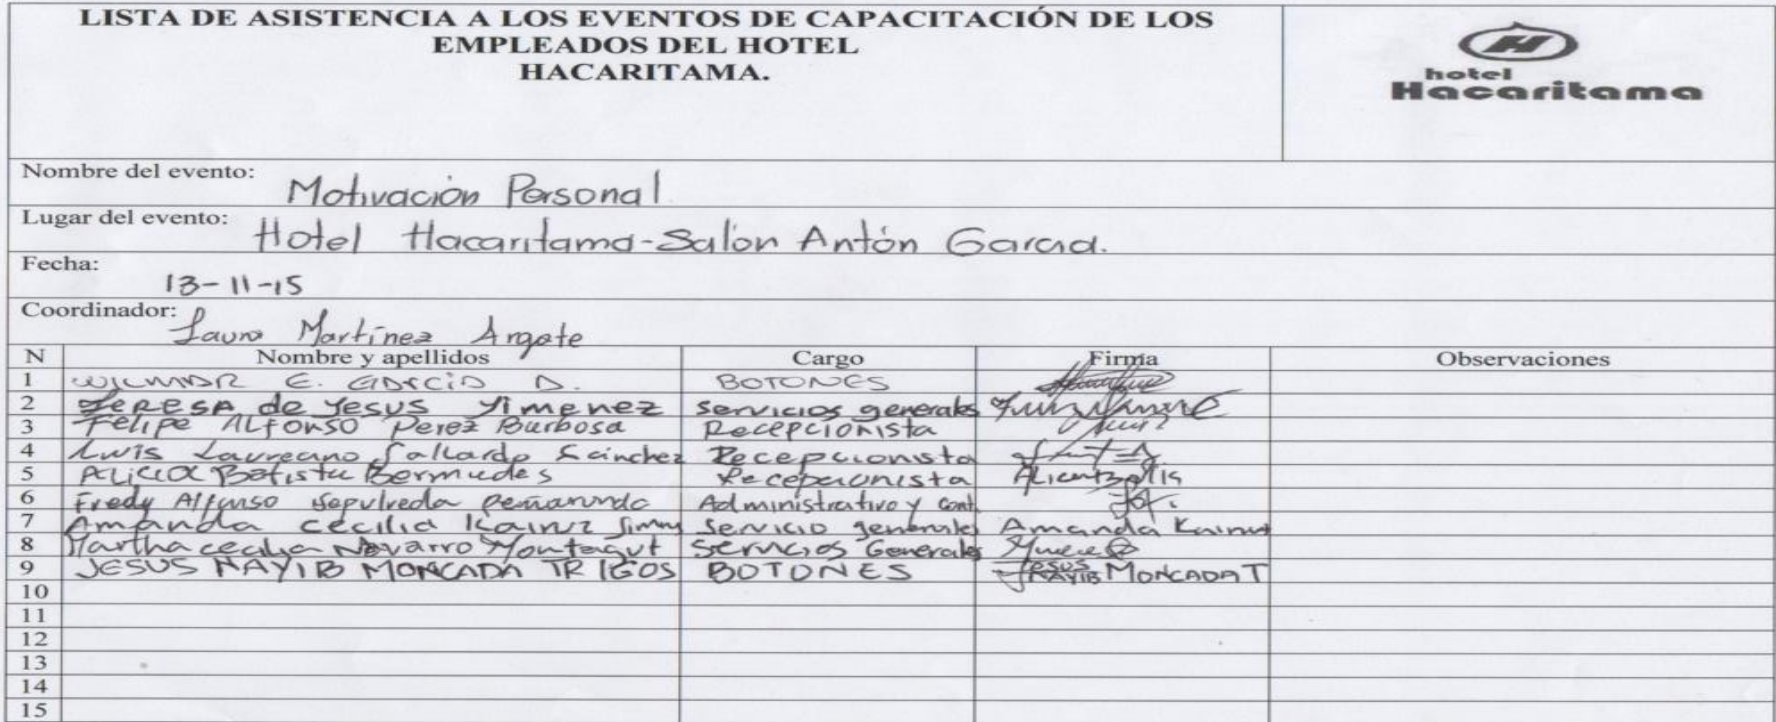 LISTA DE ASISTENCIA A LOS EVENTOS DE CAPACITACIÓN DE LOS
EMPLEADOS DEL HOTEL
HACARITAMA.
H
hotel
Hacaritama
Nombre del evento: Motivación Personal
Lugar del evento: Hotel Hacaritama-Salon Antón Garcia.
Fecha: 13-11-15
Coordinador: Laura Martínez Argote
N Nombre y apellidos Cargo Firma Observaciones
1 WILMAR E. GARCIA D. BOTONES
2 TERESA de Jesus Jimenez Servicios generales
3 Felipe ALFONSO Perez Barbosa Recepcionista
4 Luis Laureano Gallardo Sánchez Recepcionista
5 Alicia Batista Bermudes Recepcionista
6 Fredy Alfonso Sepulveda Peñaranda Administrativo y cont
7 Amanda cecilia Servicio generales Amanda
8 Martha cecilia Navarro Montagut Servicios Generales
9 JESUS NAYIB MONCADA TRIGOS BOTONES JESUS NAYIB MONCADA T
10
11
12
13
14
15